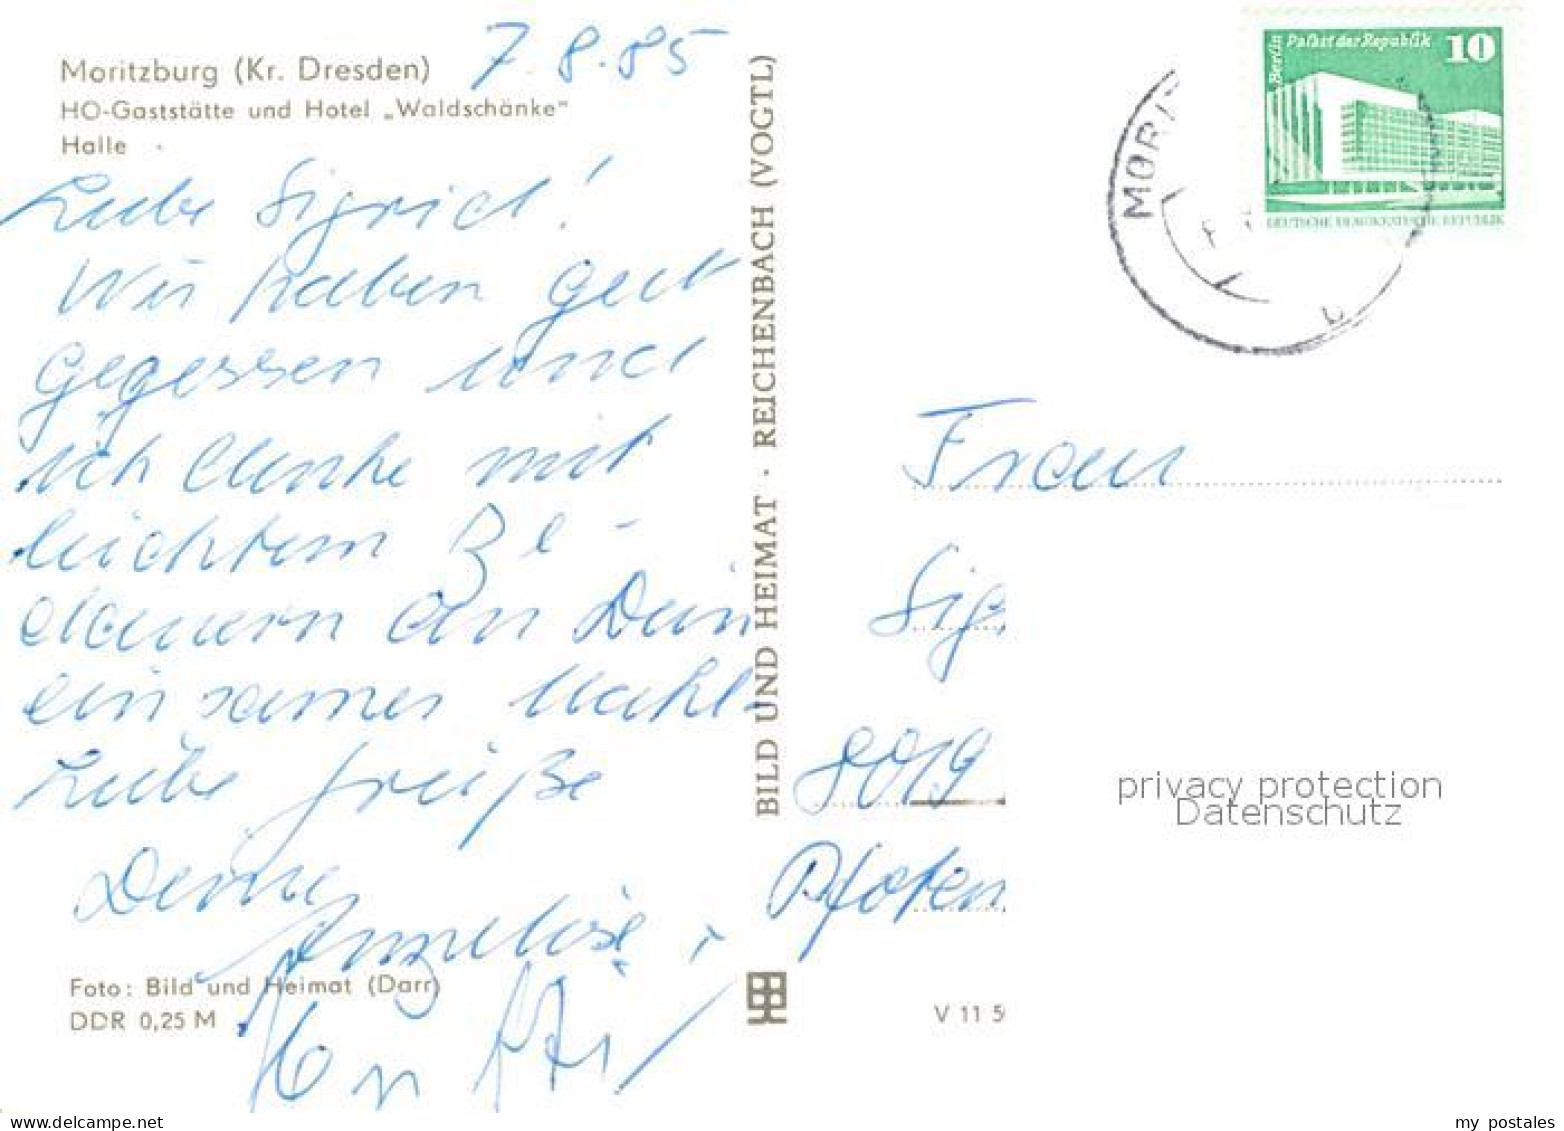 Moritzburg (Kr. Dresden)
7.8.85
HO-Gaststätte und Hotel „Waldschänke"
Halle
Liebe Sigrid!
Wir haben gut
gegessen und
ich denke mit
leichtem Be-
dauern an Dein
einsames Mahl-
Liebe Grüße
Deine
Annelise
Foto: Bild und Heimat (Darr)
DDR 0,25 M
BILD UND HEIMAT · REICHENBACH (VOGTL)
Berlin
Palast der Republik
10
DEUTSCHE DEMOKRATISCHE REPUBLIK
MORI
b
Frau
Sig
8019
Pfoten
V 11 5
privacy protection
Datenschutz
delcampe.net
my_postales